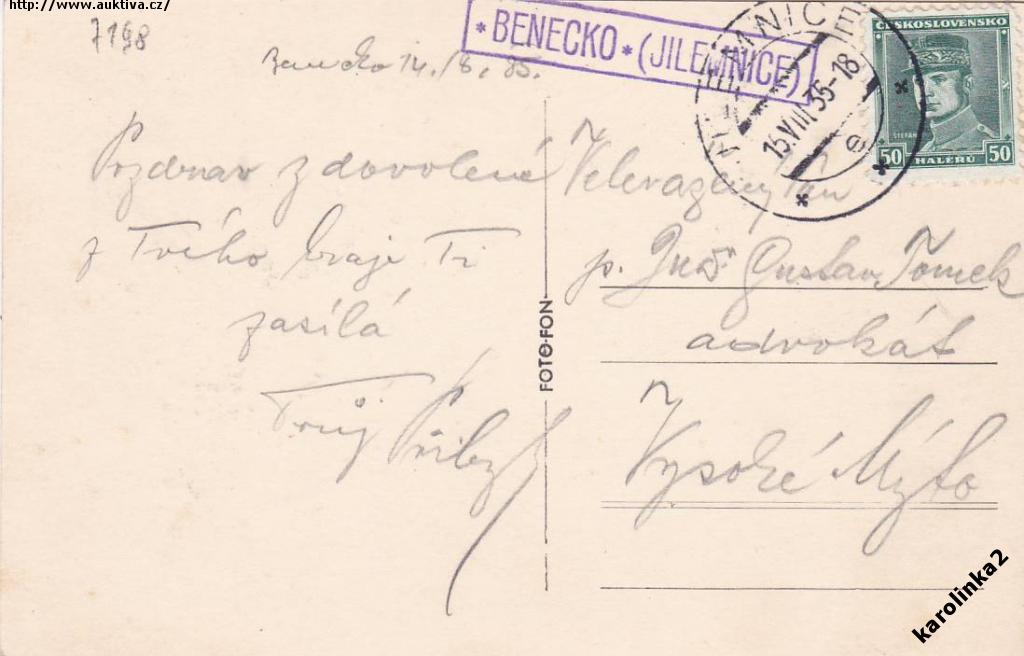 http://www.auktiva.cz/
7198
Benecko 14./8. 35.
* BENECKO * (JILEMNICE)
JILEMNICE
15.VIII.35-18
ČESKOSLOVENSKO
ŠTEFÁNIK
50 HALÉŘŮ 50
Pozdrav z dovolené
z Tvého kraje Ti
zasílá
Tvůj
Velevážený Pán
p. JUDr Gustav Tomek
advokát
Vysoké Mýto
FOTO-FON
karolinka2